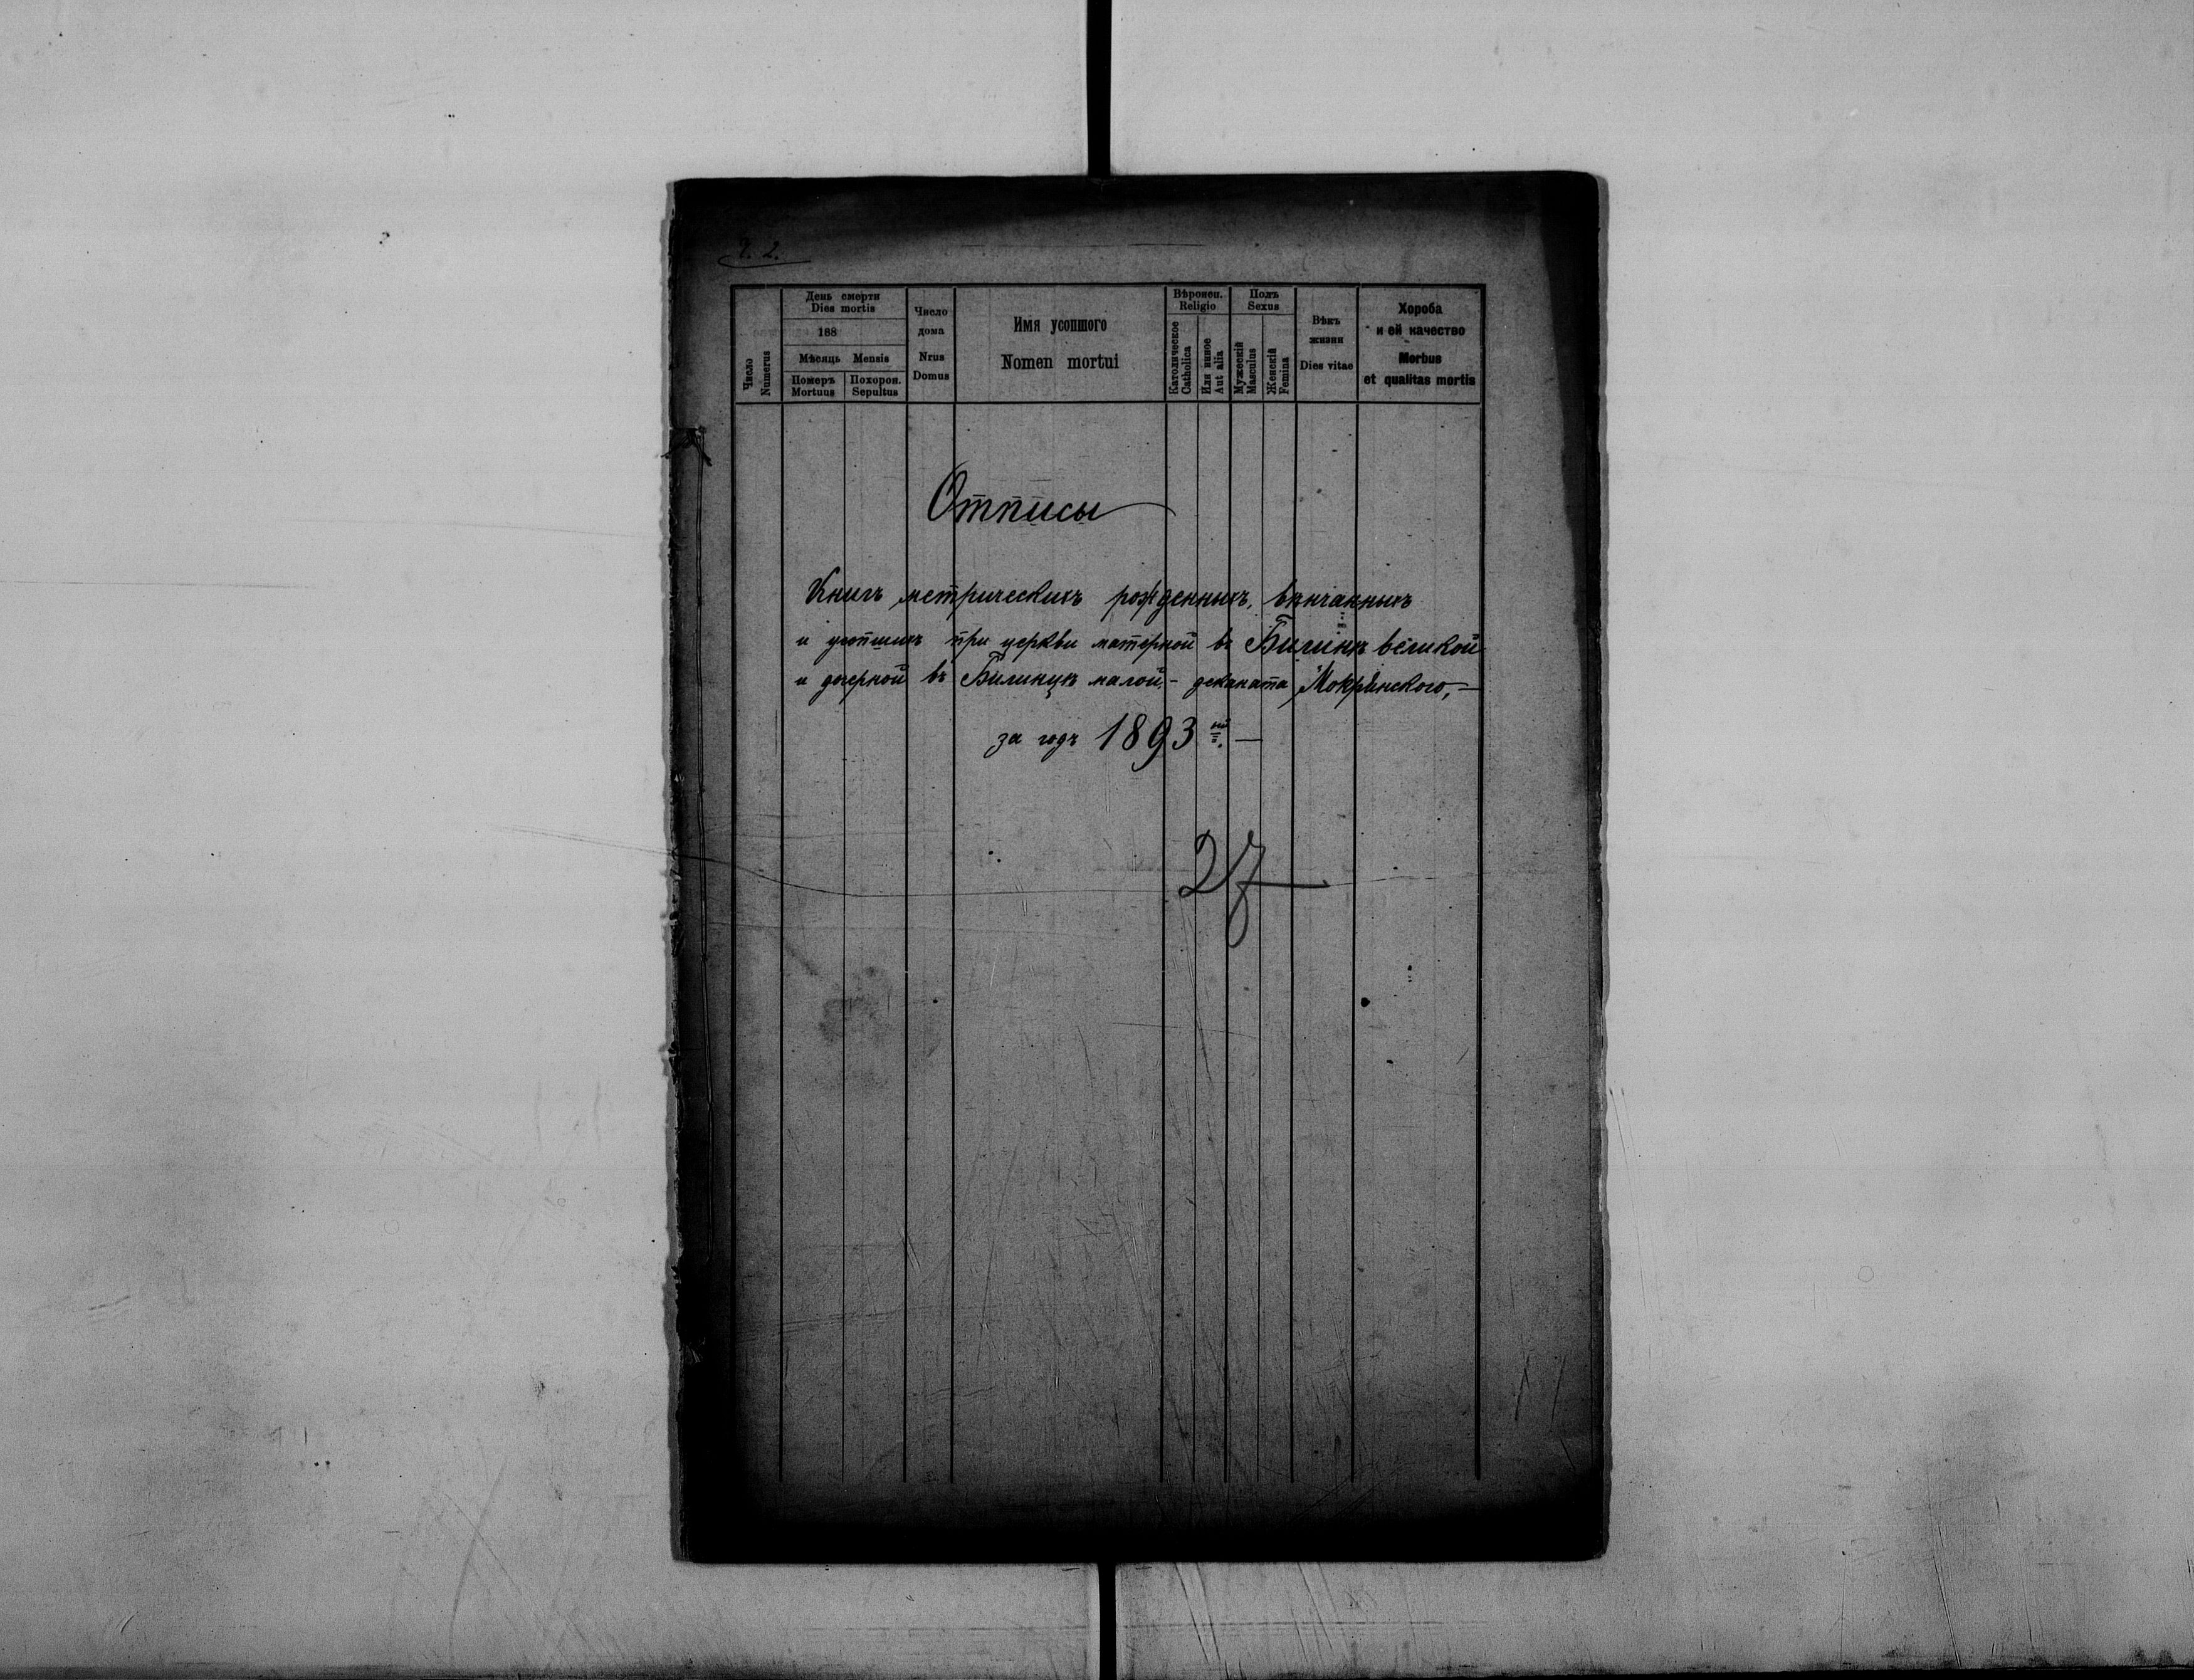 2.
Число
Numerus
День смерти
Dies mortis
188
Мѣсяць Mensis
Померъ
Mortuus
Похорон.
Sepultus
Число
дома
Nrus
Domus
Имя усопшого
Nomen mortui
Вѣроисп.
Religio
Католическое
Catholica
Или инное
Aut alia
Полъ
Sexus
Мужескій
Masculus
Женскій
Femina
Вѣкъ
жизни
Dies vitae
Хороба
и ей качество
Morbus
et qualitas mortis
Отписы
Книгъ метрическихъ рожденныхъ, вѣнчанныхъ
и усопшихъ при церкви матерной въ Билинѣ великой
и дочерной въ Билинцѣ малой, - деканата Мокрянского, —
за годъ 1893 ій —
27